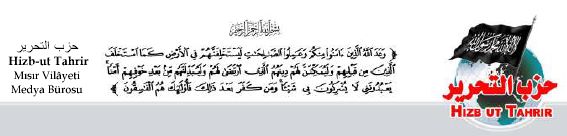 بسم الله الرحمن الرحيم
حزب التحرير
Hizb-ut Tahrir
Mısır Vilâyeti
Medya Bürosu
﴿ وَعَدَ اللَّهُ الَّذِينَ ءَامَنُوا مِنكُمْ وَعَمِلُوا الصَّلِحَتِ لَيَسْتَخْلِفَنَّهُمْ فِي الْأَرْضِ كَمَا اسْتَخْلَفَ
الَّذِينَ مِن قَبْلِهِمْ وَلَيُمَكِّنَنَّ لَهُمْ دِينَهُمُ الَّذِي ارْتَضَى لَهُمْ وَلَيُبَدِّلَنَّهُم مِّن بَعْدِ خَوْفِهِمْ أَمْنًا
يَعْبُدُونَنِي لَا يُشْرِكُونَ بِي شَيْئًا وَمَن كَفَرَ بَعْدَ ذَلِكَ فَأُولَئِكَ هُمُ الْفَسِقُونَ ﴾
لا إله إلا الله محمد رسول الله
حزب التحرير
HIZB UT TAHRIR